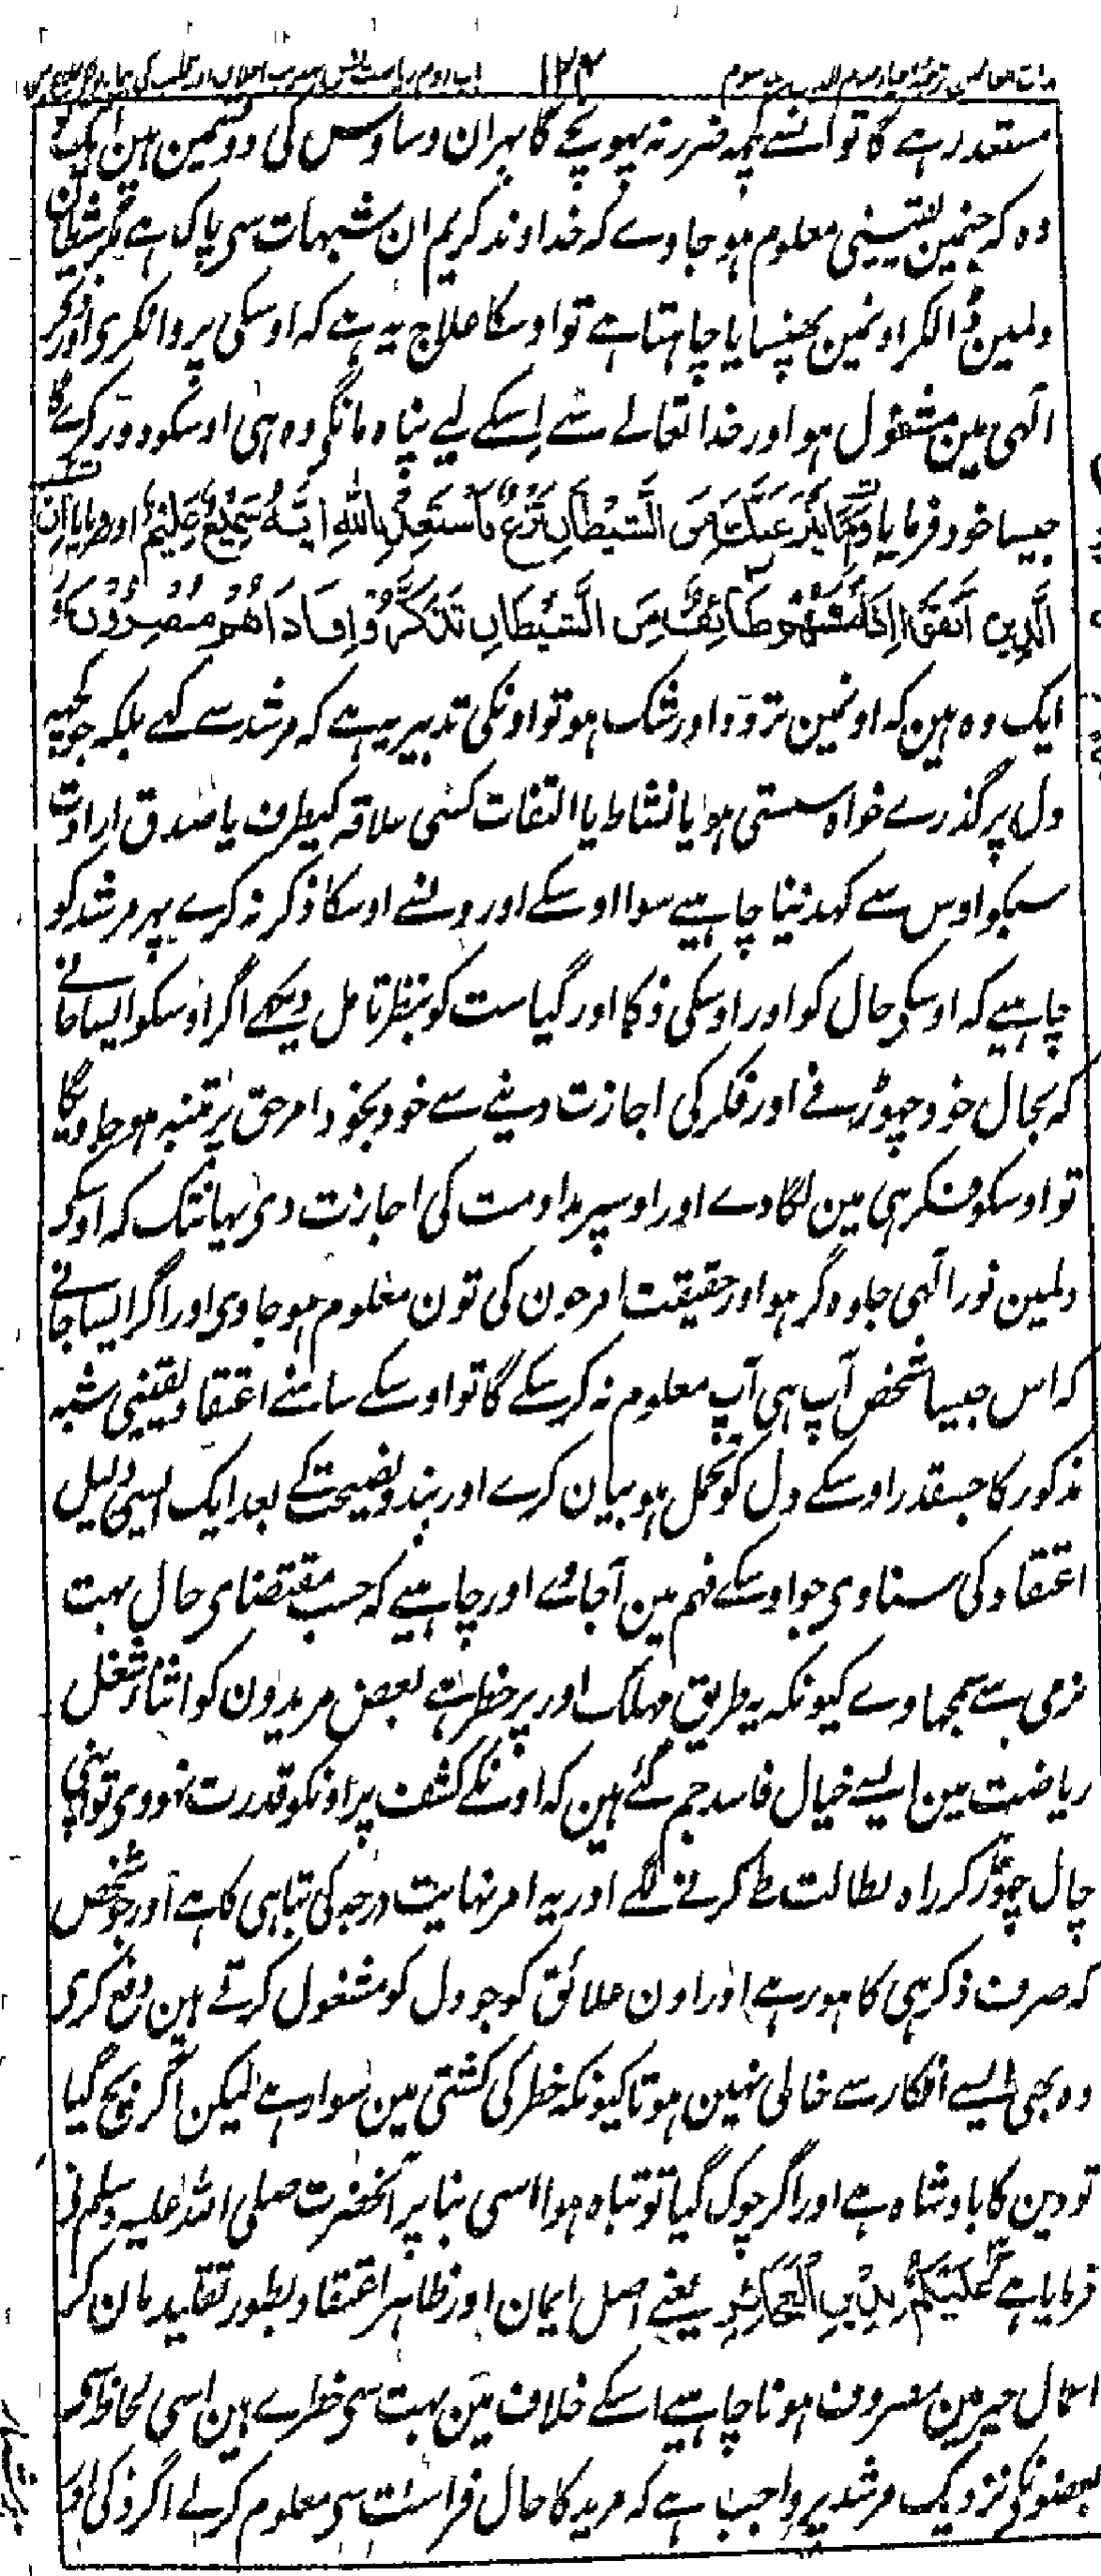 ۱۲۴
مستعد رہے گا تو اوسے کچھ ضرر نہ پہونچے گا پہر ان وساوس کی دو قسمین ہین ایک تو
وہ کہ جنمین یقینی معلوم ہو جاوے کہ خداوند کریم ان شبہات سی پاک ہے مگر شیطان
دلمین ڈالکر اونمین پھنسایا چاہتا ہے تو اوسکا علاج یہ ہے کہ اوسکی پروا نکری اور ذکر
الٰہی مین مشغول ہو اور خدا تعالے سے اسکے لیے پناہ مانگی وہ ہی اوسکو دور کریگا
جیسا خود فرمایا وَإِمَّا يَنْزَغَنَّكَ مِنَ الشَّيْطَانِ نَزْغٌ فَاسْتَعِذْ بِاللَّهِ إِنَّهُ سَمِيعٌ عَلِيمٌ اور فرمایا إِنَّ
الَّذِينَ اتَّقَوْا إِذَا مَسَّهُمْ طَائِفٌ مِنَ الشَّيْطَانِ تَذَكَّرُوا فَإِذَا هُمْ مُبْصِرُونَ اور
ایک وہ ہین کہ اونمین تردد اور شک ہو تو اونکی تدبیر یہ ہے کہ مرشد سے کہے بلکہ جو کچھ
دل پر گذرے خواہ سستی ہو یا نشاط یا التفات کسی علاقہ کیطرف یا صدق ارادت
سبکو اوس سے کہدینا چاہیے سوا اوسکے اور ونسے اوسکا ذکر نہ کرے پہر مرشد کو
چاہیے کہ اوسکی حال کو اور اوسکی ذکا اور کیاست کو بنظر تامل دیکھے اگر اوسکو ایسا جانے
کہ بحال خود چھوڑنے اور فکر کی اجازت دینے سے خود بخود امر حق پر متنبہ ہو جاویگا
تو اوسکو فکر ہی مین لگادے اور اوسپر مداومت کی اجازت دی یہانتک کہ اوسکے
دلمین نور الٰہی جلوہ گر ہو اور حقیقت امر جون کی تون معلوم ہو جاوی اور اگر ایسا جانے
کہ اس جیسا شخص آپ ہی آپ معلوم نہ کر سکے گا تو اوسکے سامنے اعتقاد یقینی شبہ
مذکور کا جسقدر اوسکے دل کو تحمل ہو بیان کرے اور پند و نصیحت کے بعد ایک ایسی دلیل
اعتقاد کی سناوی جو اوسکے فہم مین آجاوے اور چاہیے کہ حسب مقتضای حال بہت
نرمی سے سمجھاوے کیونکہ یہ طریق مہلک اور پر خطر ہے بعض مریدون کو اثناء شغل
ریاضت مین ایسے خیال فاسد جم گئے ہین کہ اونکے کشف پر اونکو قدرت نہووی تو اپنی
چال چھوڑ کر راہ بطالت طے کرنے لگے اور یہ امر نہایت درجہ کی تباہی کا ہے اور جو شخص
کہ صرف ذکر ہی کا ہو رہے اور اون علائق کو جو دل کو مشغول کرتے ہین دفع کری
وہ بھی ایسے افکار سے خالی نہین ہوتا کیونکہ خطر کی کشتی مین سوار ہے لیکن اگر بچ گیا
تو دین کا بادشاہ ہے اور اگر چوک گیا تو تباہ ہوا اسی بنا پر آنحضرت صلی اللہ علیہ وسلم نی
فرمایا ہے عَلَيْكُمْ بِدِينِ الْعَجَائِزِ یعنے اصل ایمان اور ظاہر اعتقاد بطور تقلید مان کر
اعمال خیر مین مصروف ہونا چاہیے اسکے خلاف مین بہت سی خطرے ہین اسی لحاظ سے
بعضونکی نزدیک مرشد پر واجب ہے کہ مرید کا حال فراست سی معلوم کرلے اگر ذکی اور